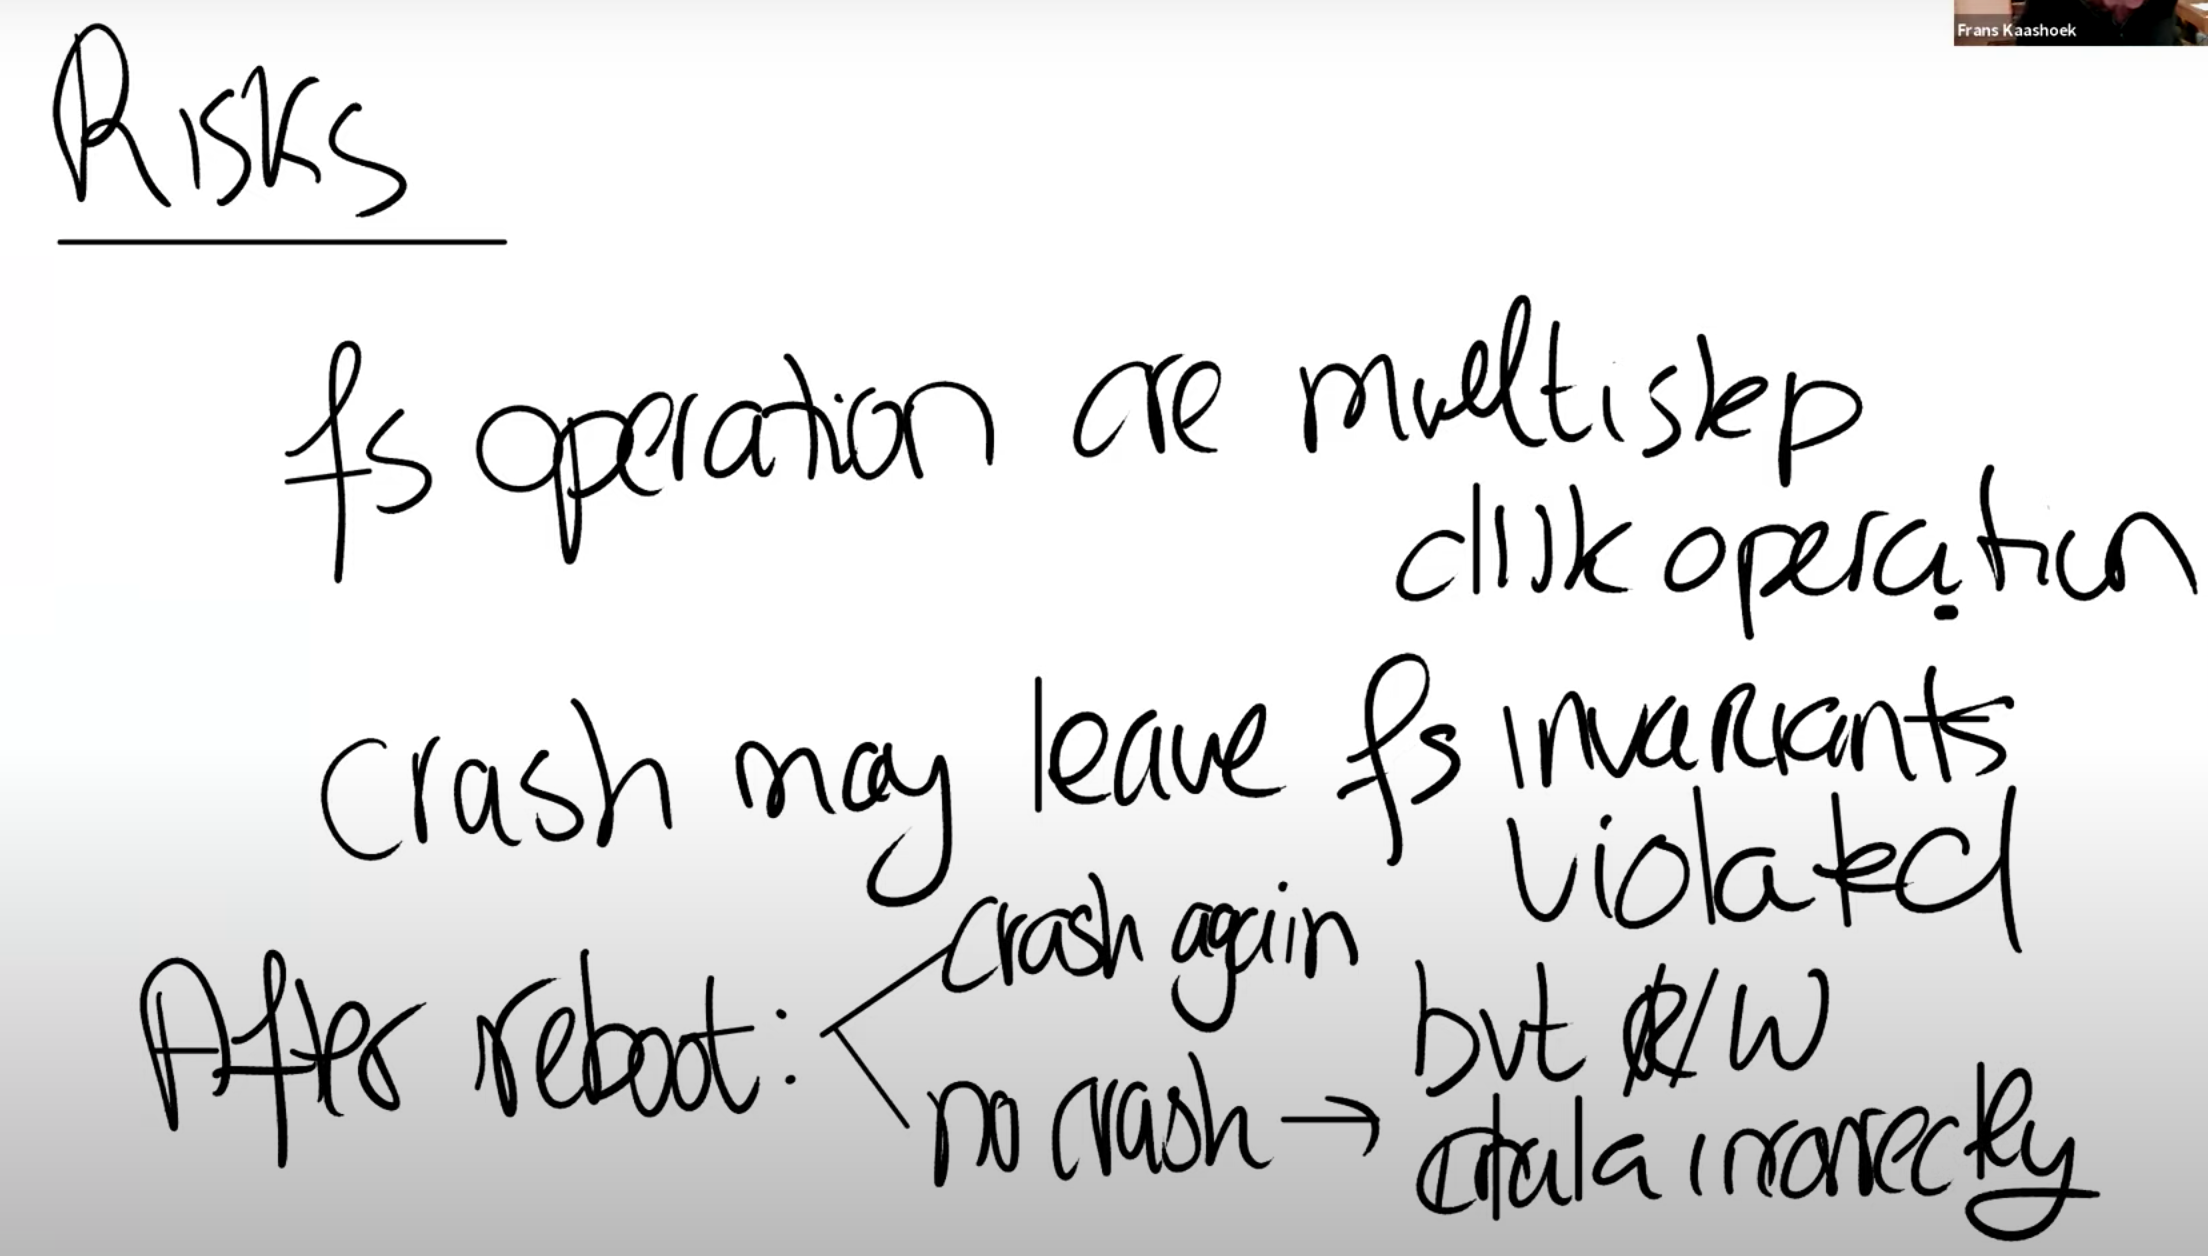 Frans Kaashoek
Risks
fs operation are multistep
disk operation
crash may leave fs invariants
violated
After reboot:
crash again
no crash → but R/W
data incorrectly